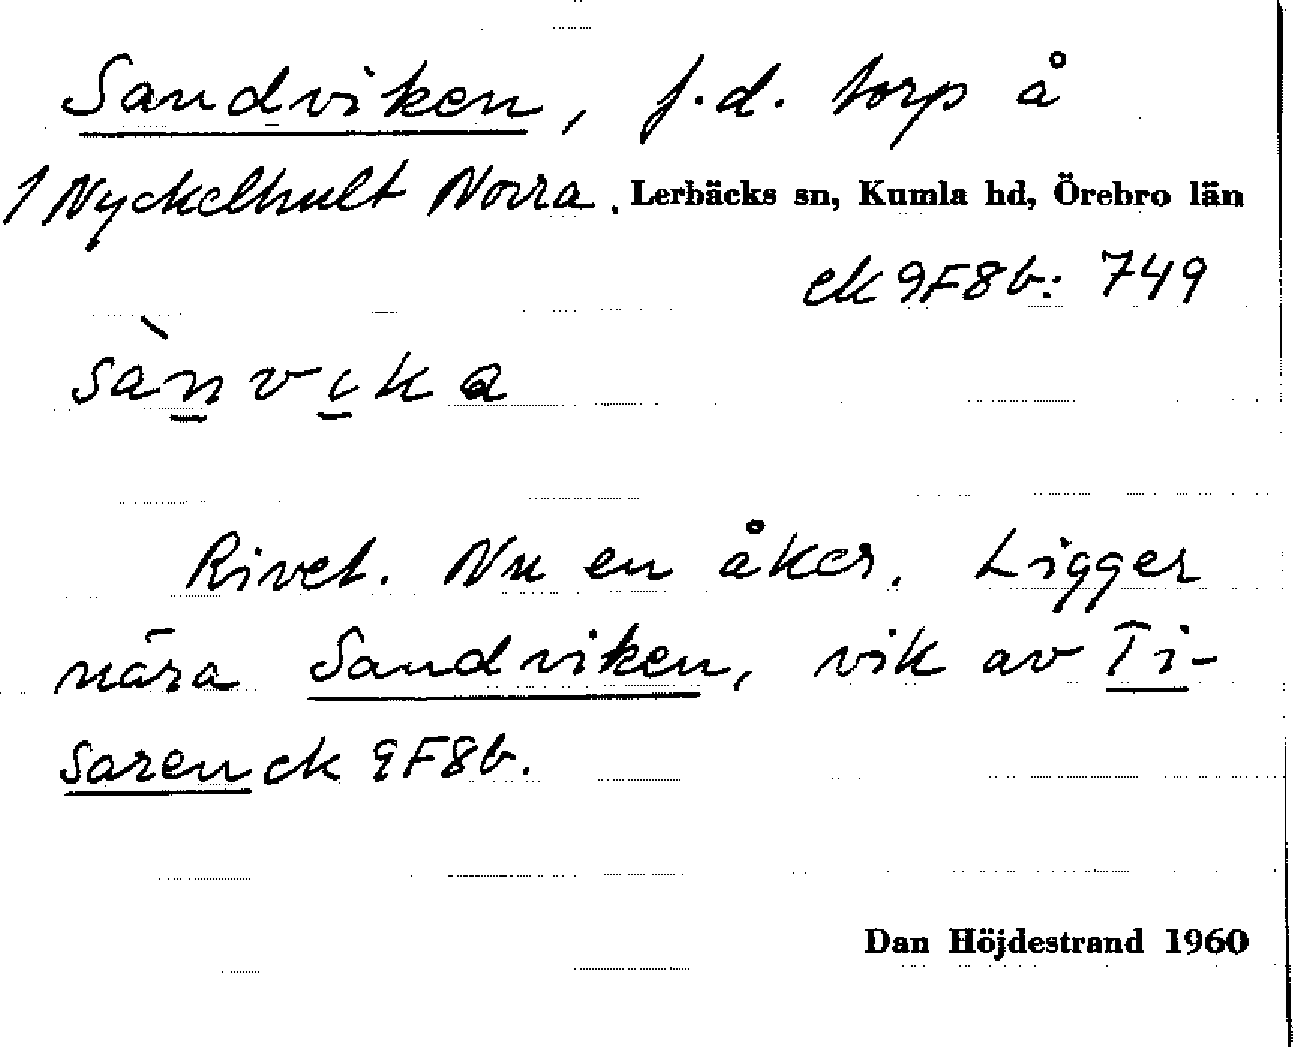 Sandviken, f.d. torp å
1 Nyckelhult Norra. Lerbäcks sn, Kumla hd, Örebro län
ek 9F8b: 749
sànvika
Rivet. Nu en åker. Ligger
nära Sandviken, vik av Ti-
saren ek 9F8b.
Dan Höjdestrand 1960